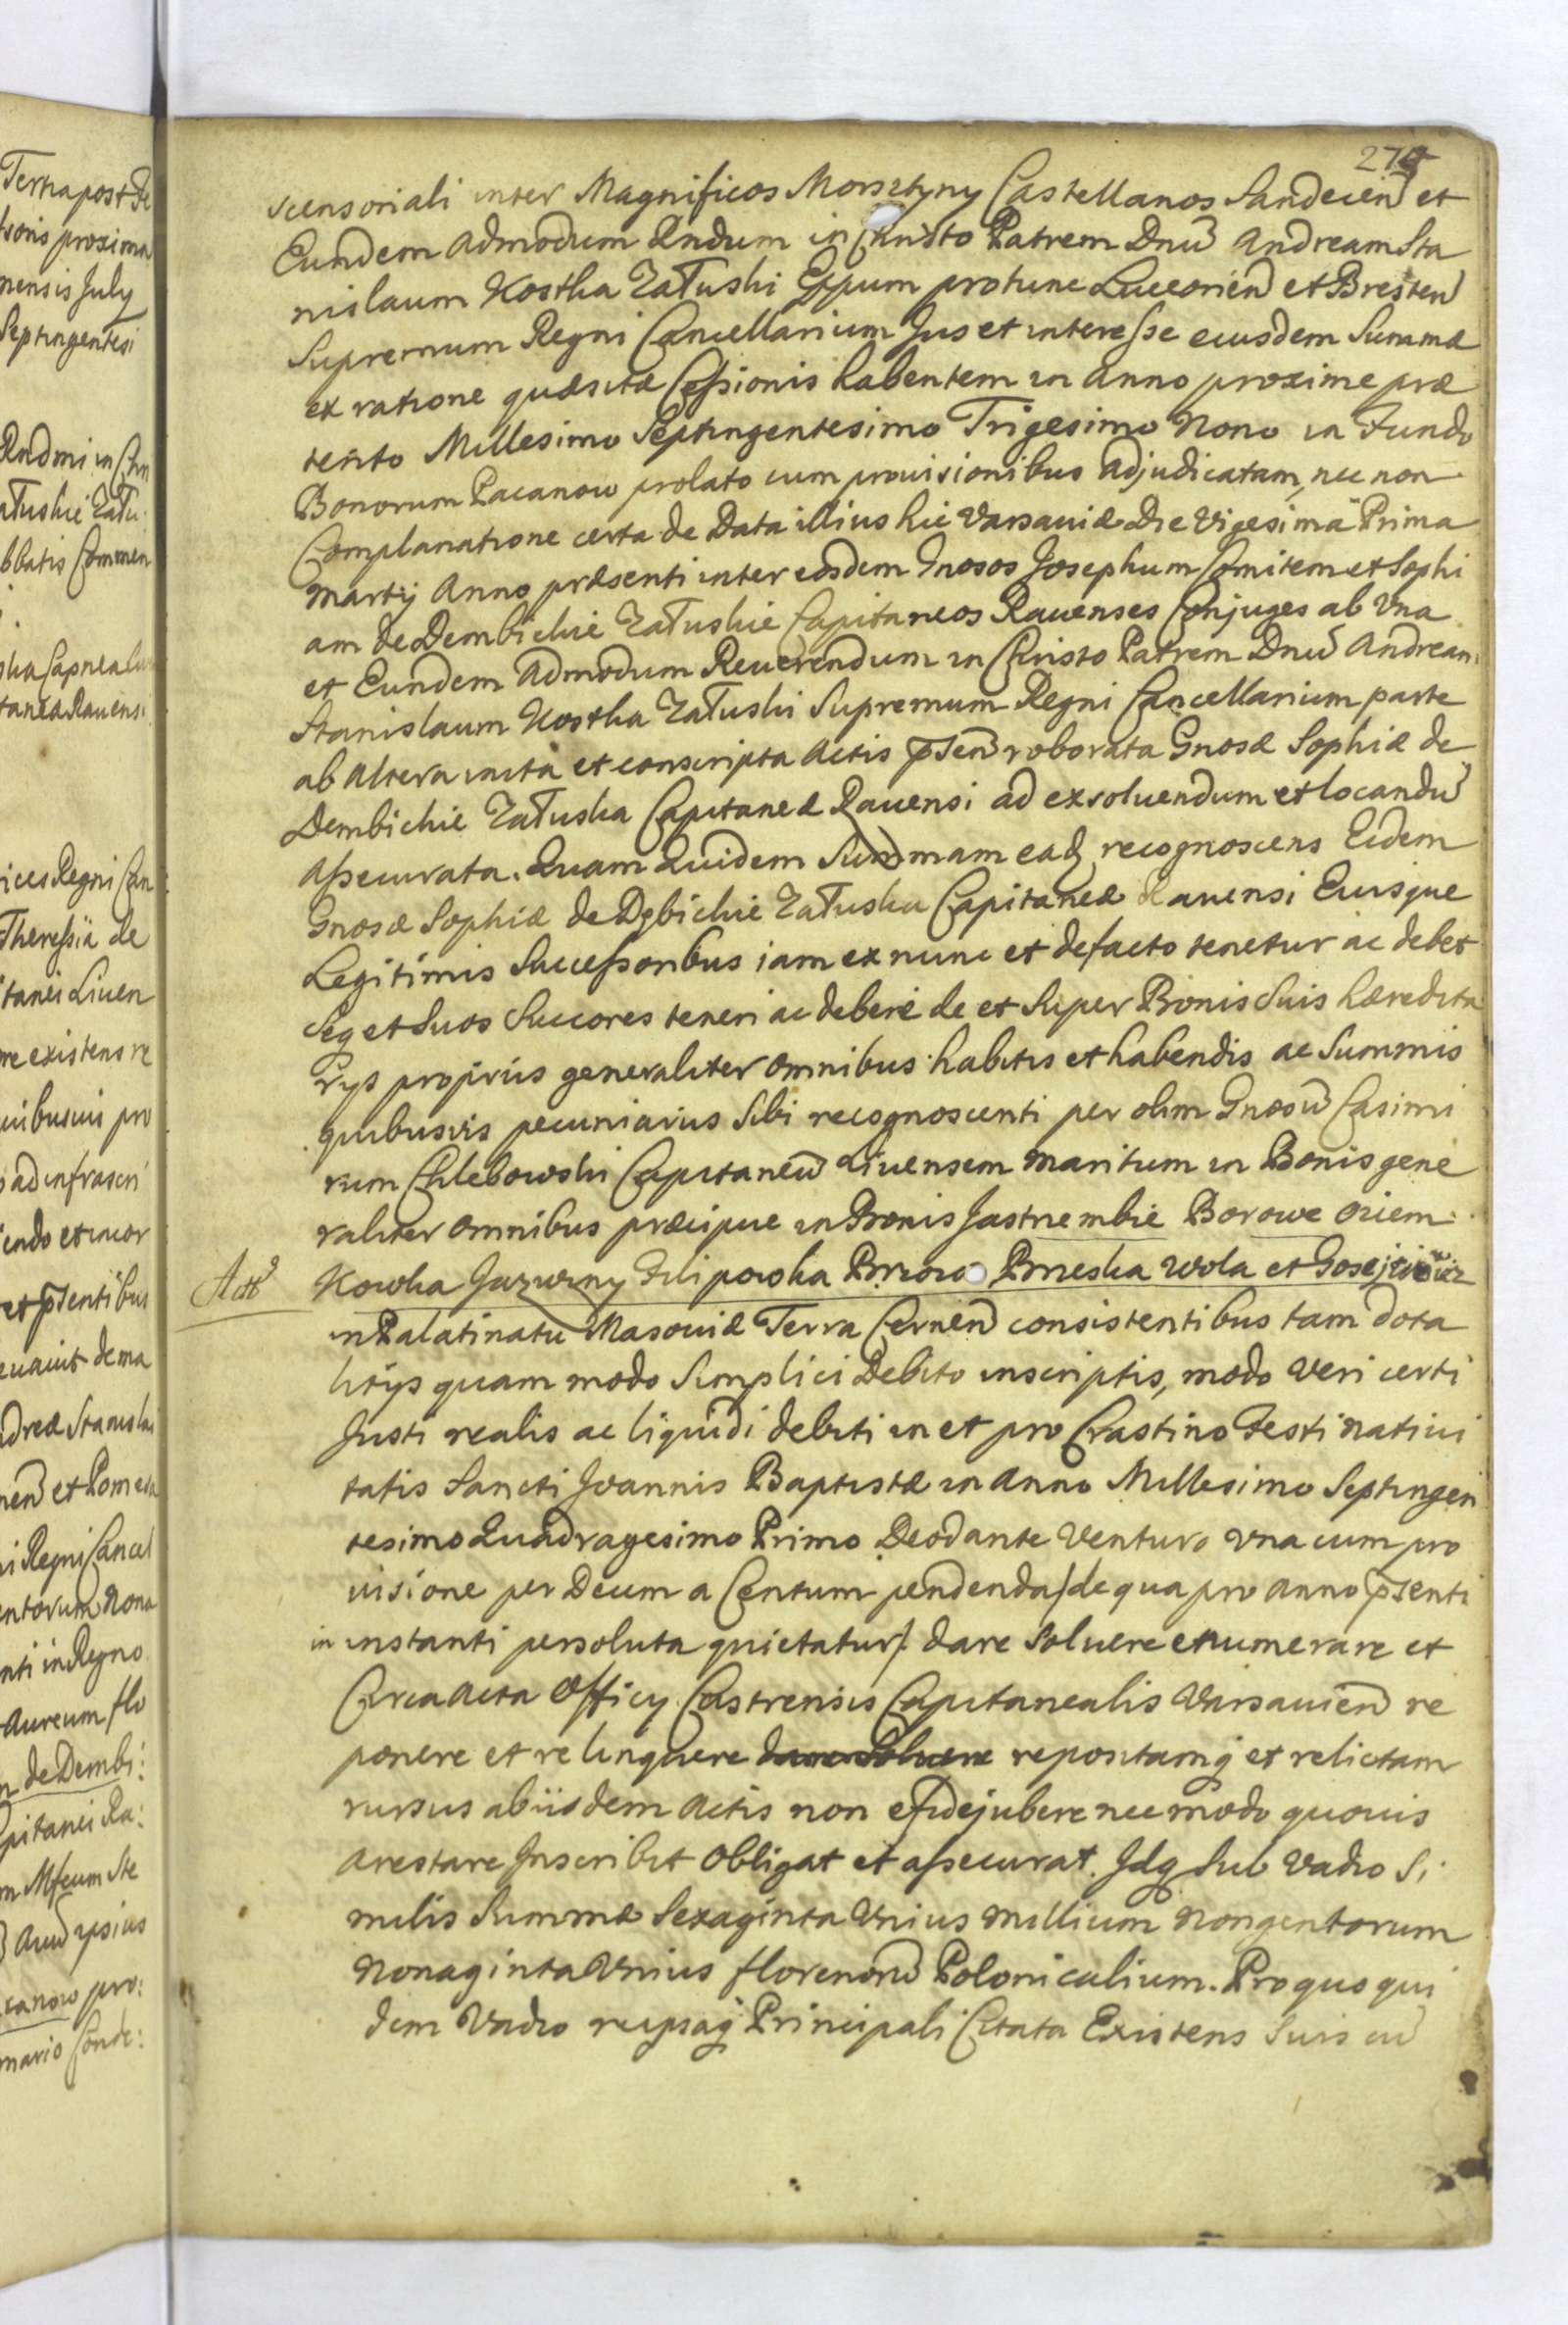 Tertia post
proxima
mensis July
Septingentesi
Rndmi in Chri
bbatis Commen
Theressia de
tanei Liven
re existens re
ad infrascri
et pñsentibus
evavit de ma
dreæ Stanislai
et Pomera
i Regni Cancel
entorum Nona
nti in Regno
Aureum flo
de Dembi:
pitanei Ra:
ipsius
canow pro:
mario Conde:
scensoriali inter Magnificos Morsztyny Castellanos Sandecen̄ et
Eundem Admodum Rndum in Christo Patrem Dnū Andream Sta
nislaum Kostka Załuski Eppum protunc Luceorien̄ et Bresten̄
Supremum Regni Cancellarium Jus et interesse eiusdem Summæ
ex ratione quæsitæ Cessionis habentem in Anno proxime præ
terito Millesimo Septingentesimo Trigesimo Nono in Fundo
Bonorum Pacanow prolato cum provisionibus adjudicatam, nec non
Complanatione certa de Data illius hic Varsaviæ Die Vigesima Prima
Martij Anno præsenti inter eosdem Gnosos Josephum Comitem et Sophi
am de Dembichie Załuskie Capitaneos Ravenses Conjuges ab Vna
et Eundem Admodum Reverendum in Christo Patrem Dnū Andream
Stanislaum Kostka Załuski Supremum Regni Cancellarium parte
ab Altera inita et conscripta Actis pñsen̄ roborata Gnosæ Sophiæ de
Dembichie Załuska Capitaneæ Ravensi ad exsolvendum et locandū
Assecurata. Quam Quidem Summam eadq recognoscens Eidem
Gnosæ Sophiæ de Dębichie Załuska Capitaneæ Ravensi Eiusque
Legitimis Successoribus iam ex nunc et defacto tenetur ac debet
Seq et Suos Succores teneri ac debere de et Super Bonis Suis hæredita
rys proprijs generaliter omnibus habitis et habendis ac Summis
quibusvis pecuniarijs Sibi recognoscenti per olim Gnosū Casimi
rum Chlebowski Capitaneū Livensem Maritum in Bonis gene
raliter omnibus præcipue in Bonis Jastrzembie Borowe Oziem
Kowka Jazwiny Filipowka Brzozo Prneska Wola et
Actꝰ
in Palatinatu Masoviæ Terra Cernen̄ consistentibus tam dota
litijs quam modo Simplici Debito inscriptis, modo Veri certi
Justi realis ac liquidi debiti in et pro Crastino Festi Nativi
tatis Sancti Joannis Baptistæ in Anno Millesimo Septingen
tesimo Quadragesimo Primo Deodante Venturo Vna cum pro
visione per Decem a Centum pendenda /de qua pro Anno pñsenti
in instanti persoluta quietatur/ dare Solvere enumerare et
Circa Acta Officy Castrensis Capitanealis Varsavien̄ re
ponere et relinquere dare Solvere repositamq et relictam
rursus ab iisdem Actis non efidejubere nec modo quovis
Arestare Inscribit Obligat et assecurat. Idq Sub Vadio Si
milis Summæ Sexaginta Vnius Millium Nongentorum
Nonaginta Vnius florenorū Polonicalium. Pro quo qui
dem Vadio reipsaq Principali Citata Existens Suis cū